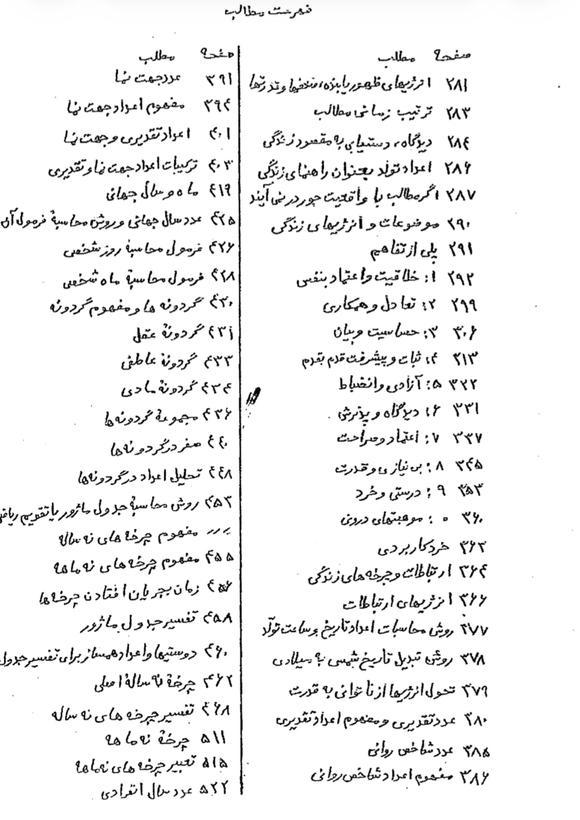 فهرست مطالب
صفحه مطلب
۲۸۱ انرژیهای ظهور یابنده، ضعفها و قدرتها
۲۸۳ ترتیب زمانی مطالب
۲۸۴ دیدگاه، دستیابی به مقصود زندگی
۲۸۶ اعداد تولد بعنوان راهنمای زندگی
۲۸۷ اگر مطالب با واقعیت جور در نمی آیند
۲۹۰ موضوعات و انرژیهای زندگی
۲۹۱ پلی از تفاهم
۲۹۲ ۱: خلاقیت و اعتماد بنفس
۲۹۹ ۲: تعادل و همکاری
۳۰۶ ۳: حساسیت و بیان
۳۱۳ ۴: ثبات و پیشرفت قدم بقدم
۳۲۲ ۵: آزادی و انضباط
۳۳۱ ۶: دیدگاه و پذیرش
۳۳۷ ۷: اعتماد و صراحت
۳۴۵ ۸: بی نیازی و قدرت
۳۵۳ ۹: درستی و خرد
۳۶۰ ۰: موهبتهای درونی
۳۶۲ خرد کاربردی
۳۶۴ ارتباطات و چرخه های زندگی
۳۶۶ انرژیهای ارتباطات
۳۷۷ روش محاسبات اعداد تاریخ و ساعت تولد
۳۷۸ روش تبدیل تاریخ شمسی به میلادی
۳۷۹ تحول انرژیها از ناتوانی به قدرت
۳۸۰ عدد تقدیری و مفهوم اعداد تقدیری
۳۸۵ عدد شاخص روانی
۳۸۶ مفهوم اعداد شاخص روانی
صفحه مطلب
۳۹۱ عدد جهت نما
۳۹۴ مفهوم اعداد جهت نما
۴۰۱ اعداد تقدیری و جهت نما
۴۰۳ ترکیبات اعداد جهت نما و تقدیری
۴۱۹ ماه و سال جهانی
۴۲۵ عدد سال جهانی و روش محاسبهٔ فرمول آن
۴۲۶ فرمول محاسبهٔ روز شخصی
۴۲۸ فرمول محاسبهٔ ماه شخصی
۴۳۰ گردونه ها و مفهوم گردونه
۴۳۱ گردونهٔ عقل
۴۳۳ گردونهٔ عاطفی
۴۳۴ گردونهٔ مادی
۴۳۶ مجموعهٔ گردونه‌ها
۴۴۰ صفر در گردونه‌ها
۴۴۸ تحلیل اعداد در گردونه‌ها
۴۵۳ روش محاسبهٔ جدول ماژور با تقویم
مفهوم چرخه های نه ساله
۴۵۵ مفهوم چرخه های نه ماهه
۴۵۶ زمان بجریان افتادن چرخه‌ها
۴۵۸ تفسیر جدول ماژور
۴۶۰ دوستیها و اعداد همساز برای تفسیر جدول
۴۶۲ چرخهٔ نه سالهٔ اصلی
۴۶۸ تفسیر چرخه های نه ساله
۵۱۱ چرخهٔ نه ماهه
۵۱۵ تعبیر چرخه های نه ماهه
۵۲۲ عدد سال انفرادی